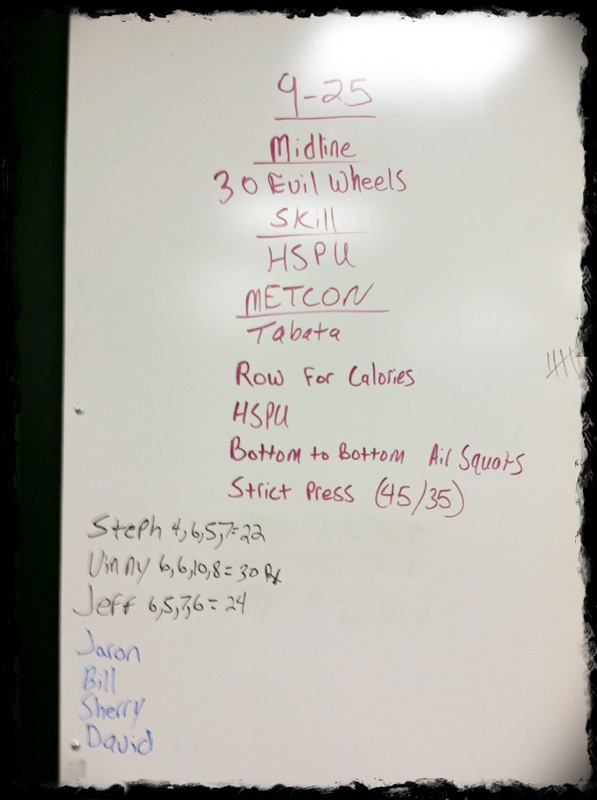 9-25
Midline
30 Evil Wheels
Skill
HSPU
METCON
Tabata
Row For Calories
HSPU
Bottom to Bottom Air Squats
Strict Press (45/35)
Steph 4,6,5,7=22
Vinny 6,6,10,8=30 Rx
Jeff 6,5,7,6=24
Jaron
Bill
Sherry
David